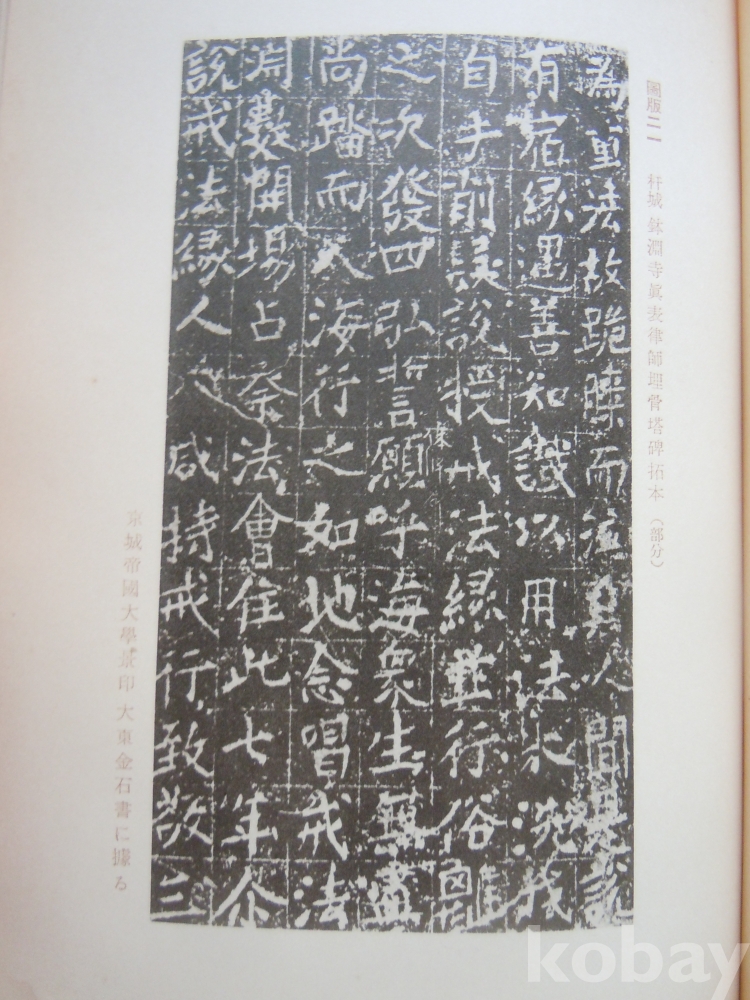 圖版二一 秆城 鉢淵寺眞表律師埋骨塔碑拓本（部分）
為重法故跪 而 人間
有宿緣遇善知識以用法水洗我
自手削 説授戒法緣並行俗離
之次發四弘誓願呼海衆生無盡
尚踏而入海行之如地念唱戒法
淵藪開場占祭法會住此七年企
說戒法緣人人咸持戒行致敬三
京城帝國大學景印 大東金石書に據る
kobay